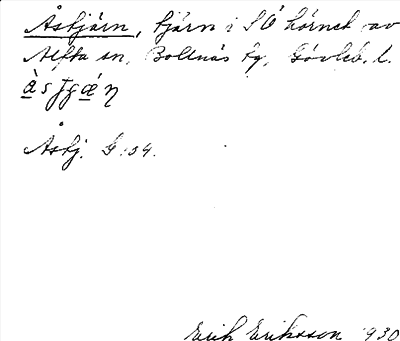 Åstjärn, tjärn i SÖ hörnet av
Alfta sn, Bollnäs tg, Gävleb. l.
Åstj. G:54.
Erik Eriksson 1930